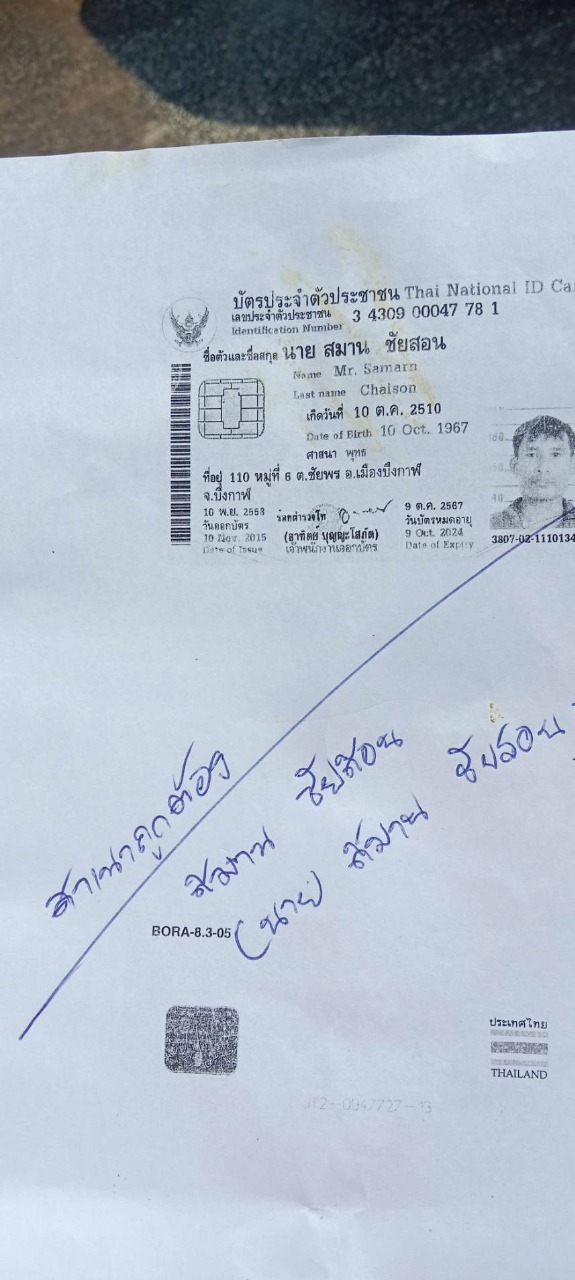 บัตรประจำตัวประชาชน Thai National ID Ca
เลขประจำตัวประชาชน 3 4309 00047 78 1
Identification Number
ชื่อตัวและชื่อสกุล นาย สมาน ชัยสอน
Name Mr. Samarn
Last name Chaison
เกิดวันที่ 10 ต.ค. 2510
Date of Birth 10 Oct. 1967
ศาสนา พุทธ
ที่อยู่ 110 หมู่ที่ 6 ต.ชัยพร อ.เมืองบึงกาฬ
จ.บึงกาฬ
10 พ.ย. 2558
วันออกบัตร
10 Nov. 2015
Date of Issue
ร้อยตำรวจโท
(อาทิตย์ บุญญะโสภัต)
เจ้าพนักงานออกบัตร
9 ต.ค. 2567
วันบัตรหมดอายุ
9 Oct. 2024
Date of Expiry
160
150
140
3807-02-1110134
สำเนาถูกต้อง
สมาน ชัยสอน
(นาย สมาน ชัยสอน)
BORA-8.3-05
ประเทศไทย
THAILAND